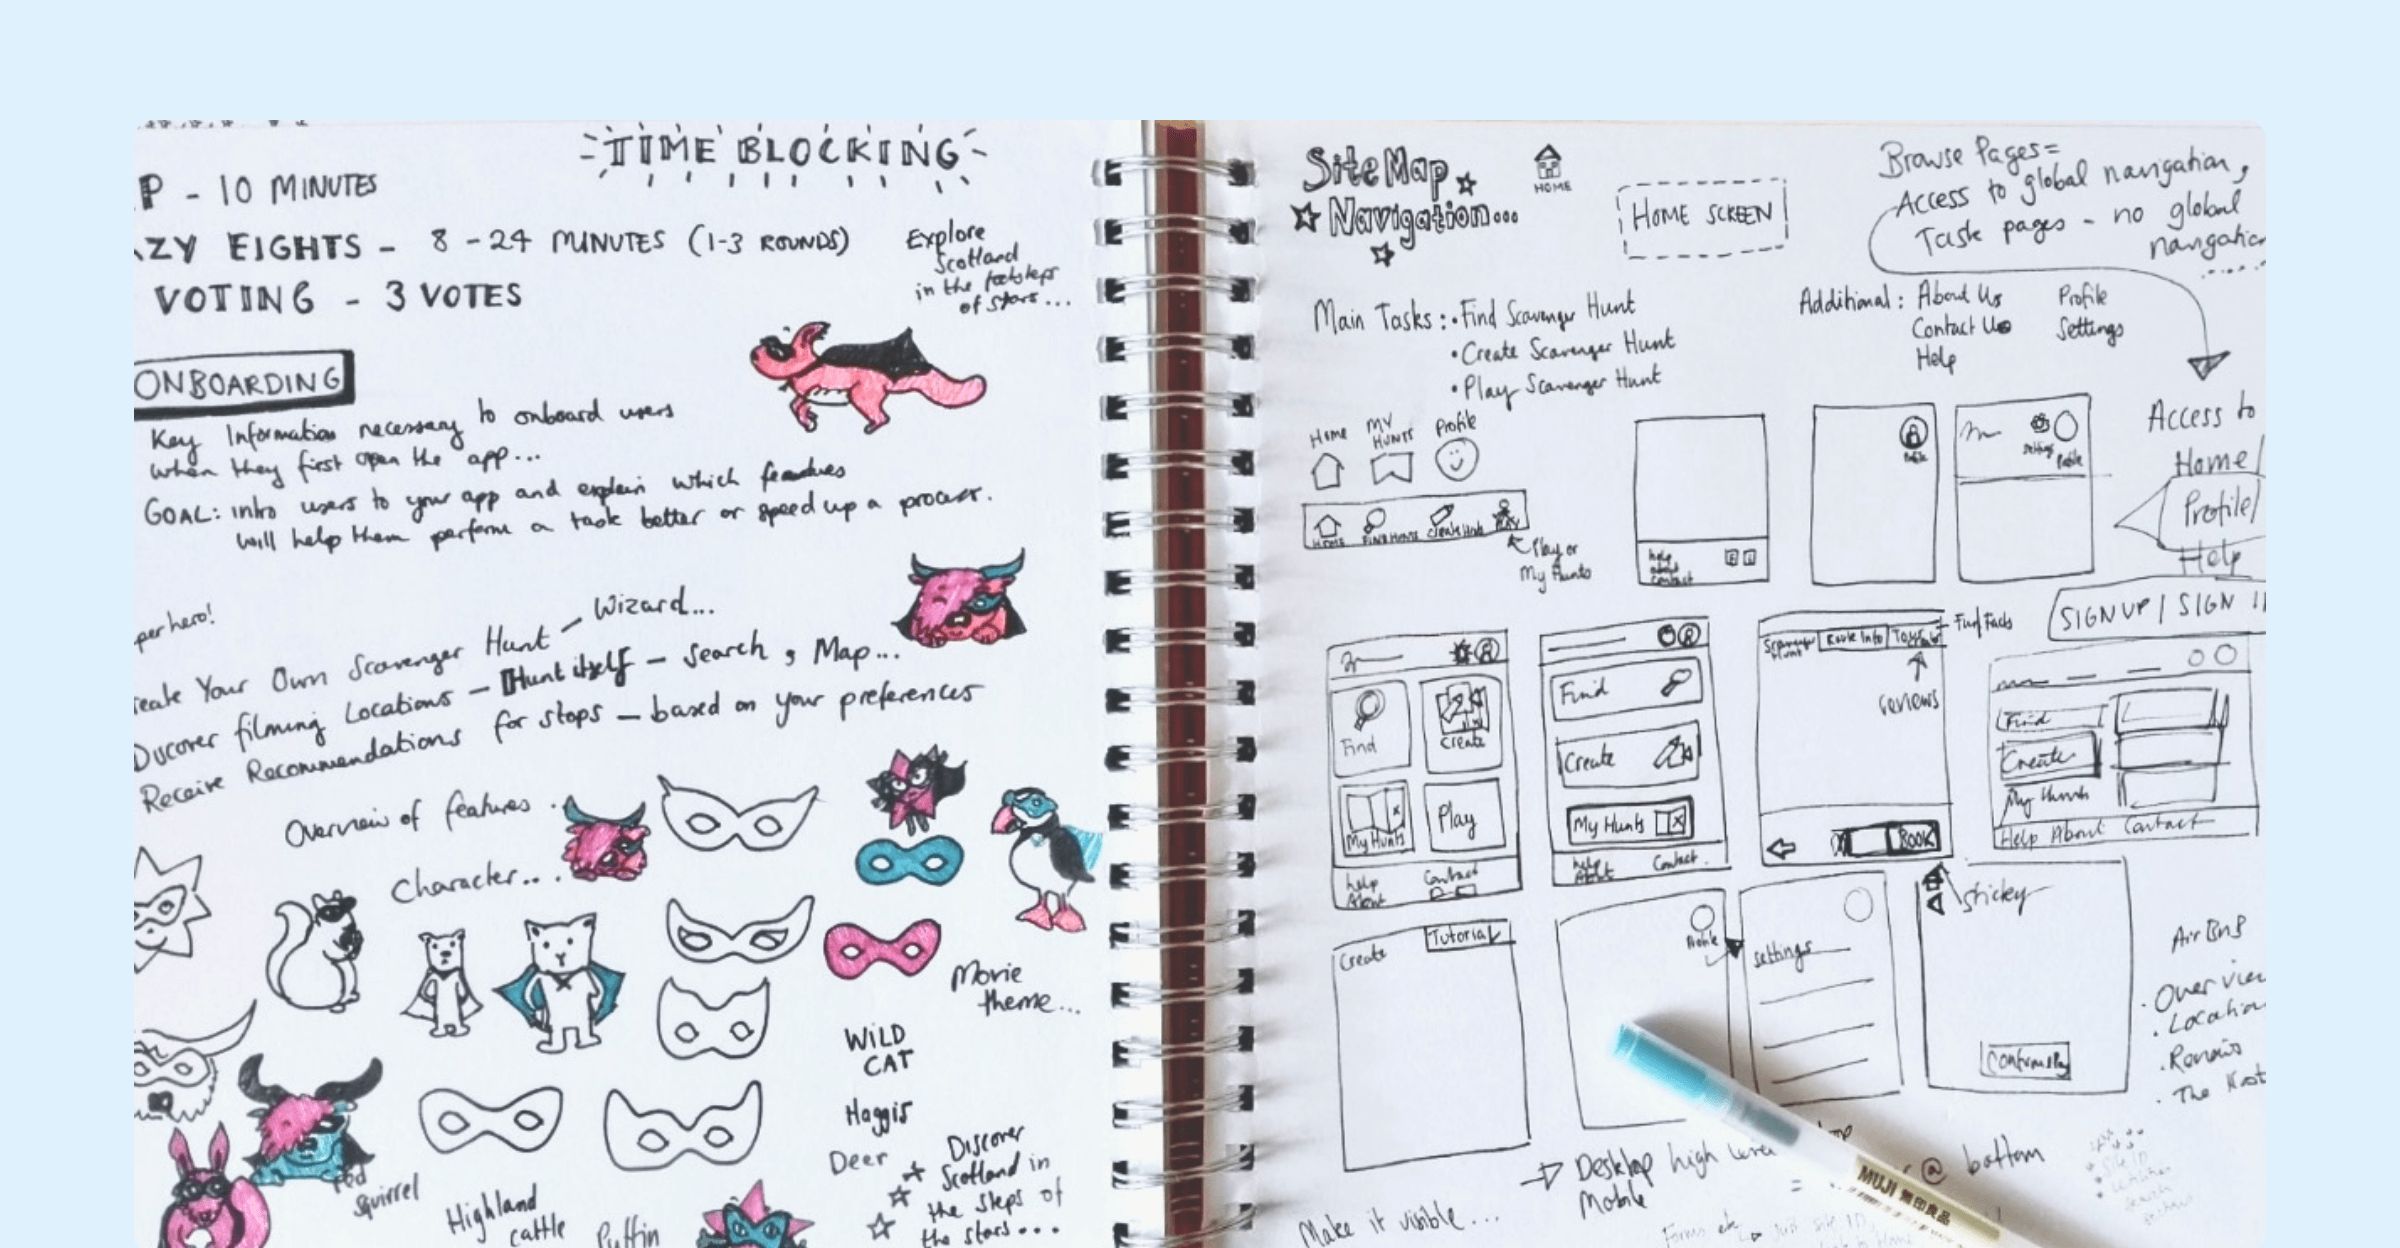 TIME BLOCKING
P - 10 MINUTES
ZY EIGHTS - 8 - 24 MINUTES (1-3 ROUNDS)
VOTING - 3 VOTES
Explore
Scotland
in the footsteps
of stars...
ONBOARDING
Key Information necessary to onboard users
when they first open the app...
GOAL: intro users to your app and explain which features
will help them perform a task better or speed up a process.
per hero!
reate Your Own Scavenger Hunt - Wizard...
Discover filming Locations - Hunt itself - Search, Map...
Receive Recommendations for stops - based on your preferences
Overview of features
Character...
Movie
theme...
WILD
CAT
Haggis
Deer
Discover
Scotland in
the steps of
the stars...
red
squirrel
Highland
cattle
Puffin
Site Map
Navigation...
HOME
HOME SCREEN
Browse Pages =
Access to global navigation,
Task pages - no global
navigation
Main Tasks: • Find Scavenger Hunt
• Create Scavenger Hunt
• Play Scavenger Hunt
Additional: About Us
Contact Us
Help
Profile
Settings
HOME
MY
HUNTS
Profile
HOME
FIND HUNTS
Create Hunt
PLAY
Play or
My Hunts
help
about
contact
Profile
settings
Profile
Access to
Home/
Profile/
Help
SIGN UP / SIGN I
Find
Create
My Hunts
Play
help
About
Contact
Find
Create
My Hunts
help
About
Contact
Scavenger
Hunt
Route Info
Fun Facts
reviews
BOOK
Find
Create
My Hunts
Help About Contact
Create
Tutorial
Profile
Settings
sticky
Confirm & Pay
AirBnB
• Overview
• Location
• Reviews
• The Host
Desktop high level
Mobile
@ bottom
Make it visible...
Forms etc
just site ID
MUJI 無印良品